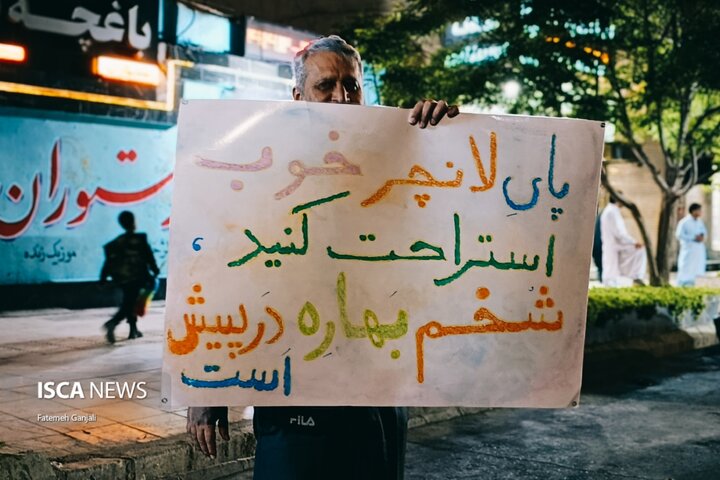 باغچه
رستوران
موزیک زنده
پایِ لانچر خوب
استراحت کنید،
شخمِ بهاره درپیش
است
FILA
ISCA NEWS
Fatemeh Ganjali